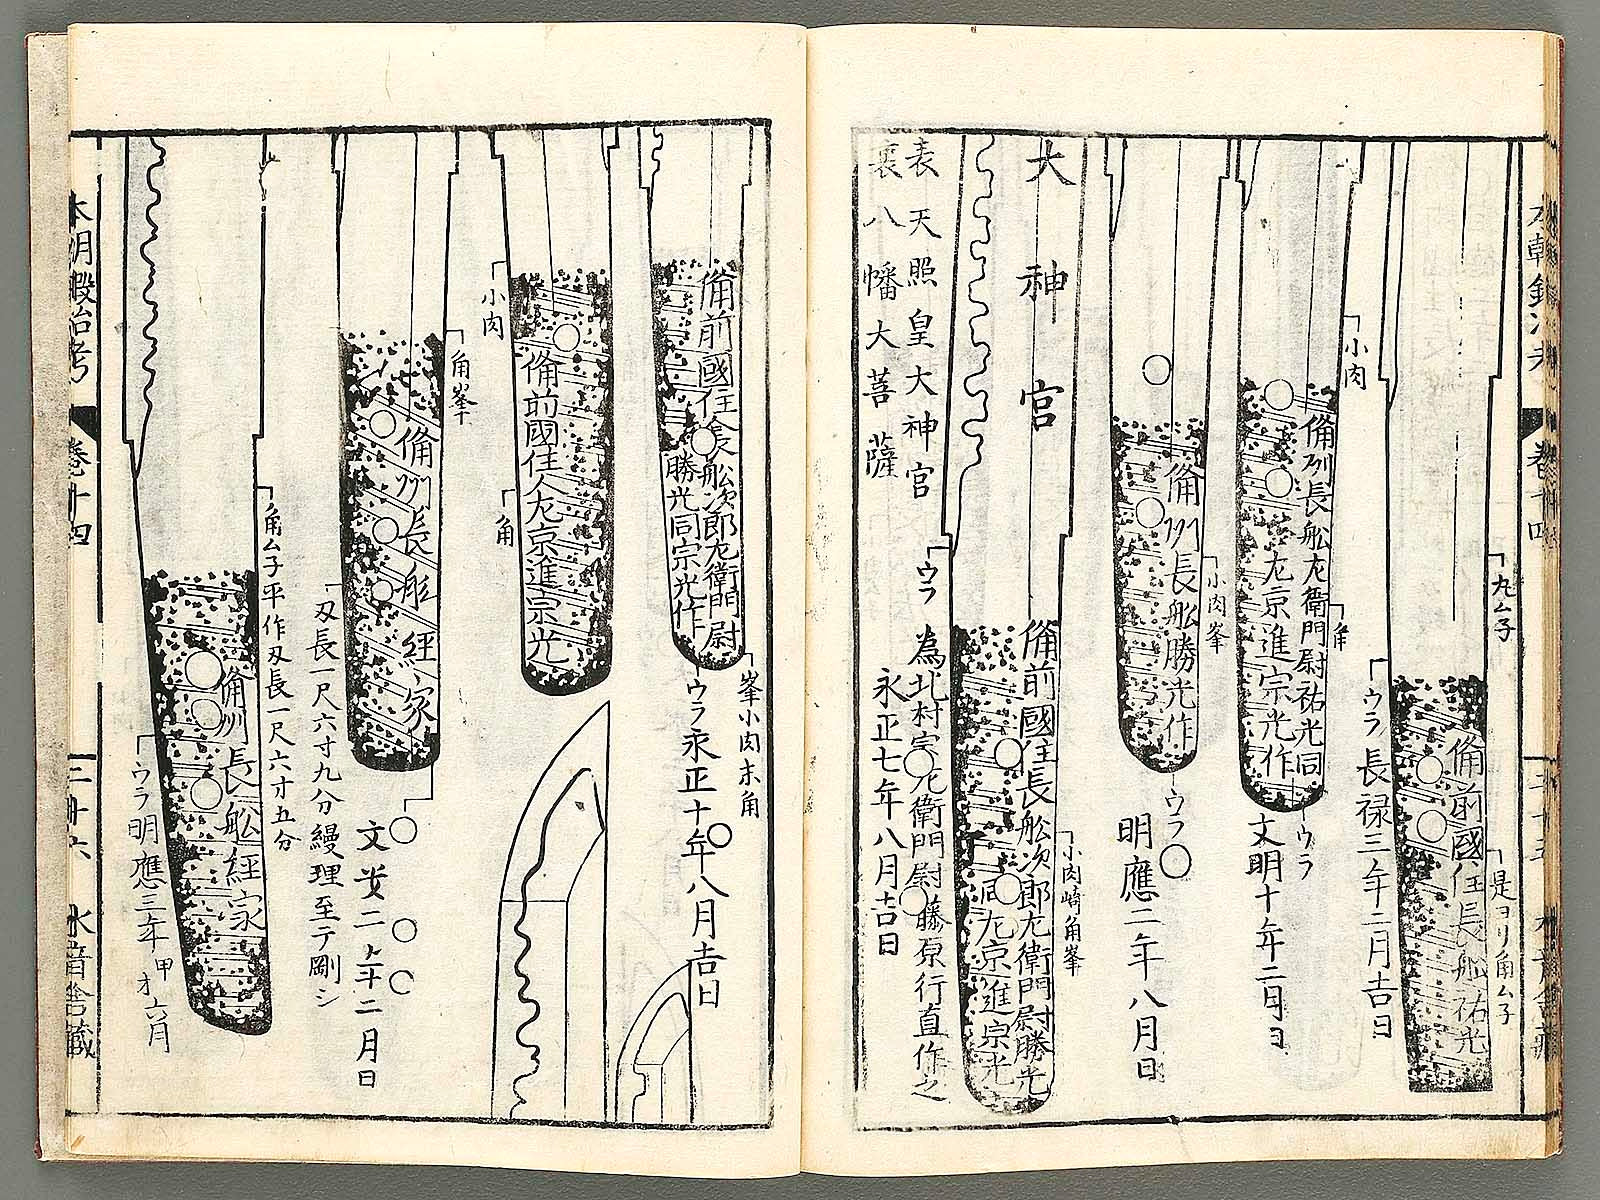 丸ムネ
備前國住長舩祐光
是ヨリ角ムネ
ウラ 長禄三年二月吉日
小肉
角
備州長舩左衛門尉祐光同
左京進宗光作
ウラ
文明十年二月日
備州長舩勝光作
小肉峯
ウラ
明應二年八月日
大神宮
備前國住長舩次郎左衛門尉勝光
同左京進宗光
小肉崎角峯
表 天照皇大神宮
裏 八幡大菩薩
ウラ 為北村宗左衛門尉藤原行直作之
永正七年八月吉日
備前國住長舩次郎左衛門尉
勝光同宗光作
峯小肉末角
ウラ永正十年八月吉日
小肉
角
備前國住人左京進宗光
角峯
備州長舩經家
文安二年二月日
刃長一尺六寸九分縵理至テ剛シ
角ムネ平作刃長一尺六寸五分
備州長舩經家
ウラ明應三年甲才六月
本朝鍛冶考
巻十四
二十六
水音舎蔵